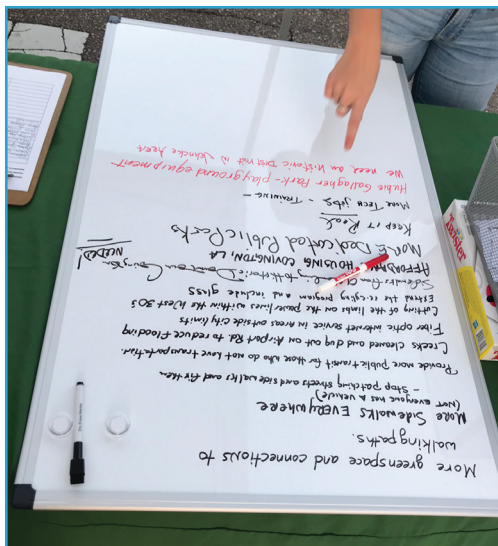 More greenspace and connections to
walking paths.
MORE SIDEWALKS EVERYWHERE
(NOT everyone has a vehicle)
- Stop patching streets and sidewalks and fix them
Provide more public transit for those who do not have transportation.
Creeks cleaned and dug out on Airport Rd. to reduce flooding
Fiber optic internet service in areas outside city limits
Cutting of the limbs on the powerlines within the West 30's
Extend the recycling program and include glass
Sidewalks from to Historic Downtown Covington
AFFORDABLE HOUSING COVINGTON, LA
NEEDED!
More Dedicated Public Parks
KEEP IT Real
MORE TECH jobs - TRAINING -
Hubie Gallagher Park - playground equipment
We need an Historic District in Jahncke Area
Twister